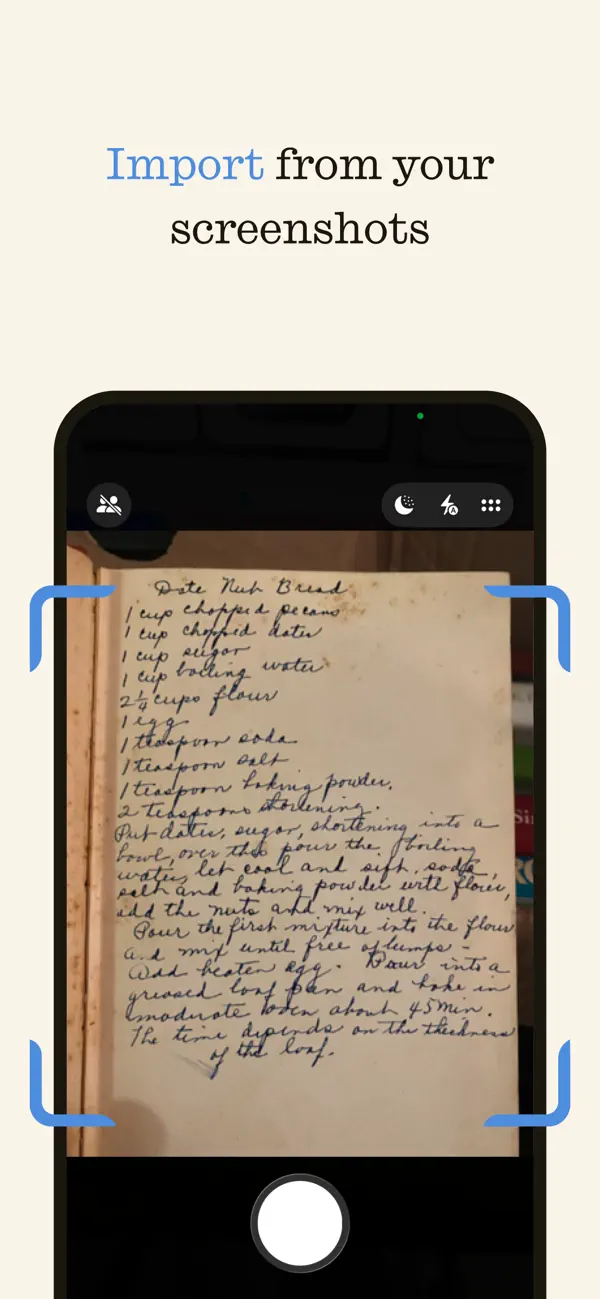 Import from your
screenshots
Date Nut Bread
1 cup chopped pecans
1 cup chopped dates
1 cup sugar
1 cup boiling water
2 1/4 cups flour
1 egg
1 teaspoon soda
1 teaspoon salt
1 teaspoon baking powder.
2 teaspoons shortening.
Put dates, sugar, shortening into a
bowl, over this pour the boiling
water, let cool and sift, soda,
salt and baking powder with flour,
add the nuts and mix well.
Pour the first mixture into the flour
and mix until free of lumps -
Add beaten egg. Pour into a
greased loaf pan and bake in
moderate oven about 45 min.
The time depends on the thickness
of the loaf.